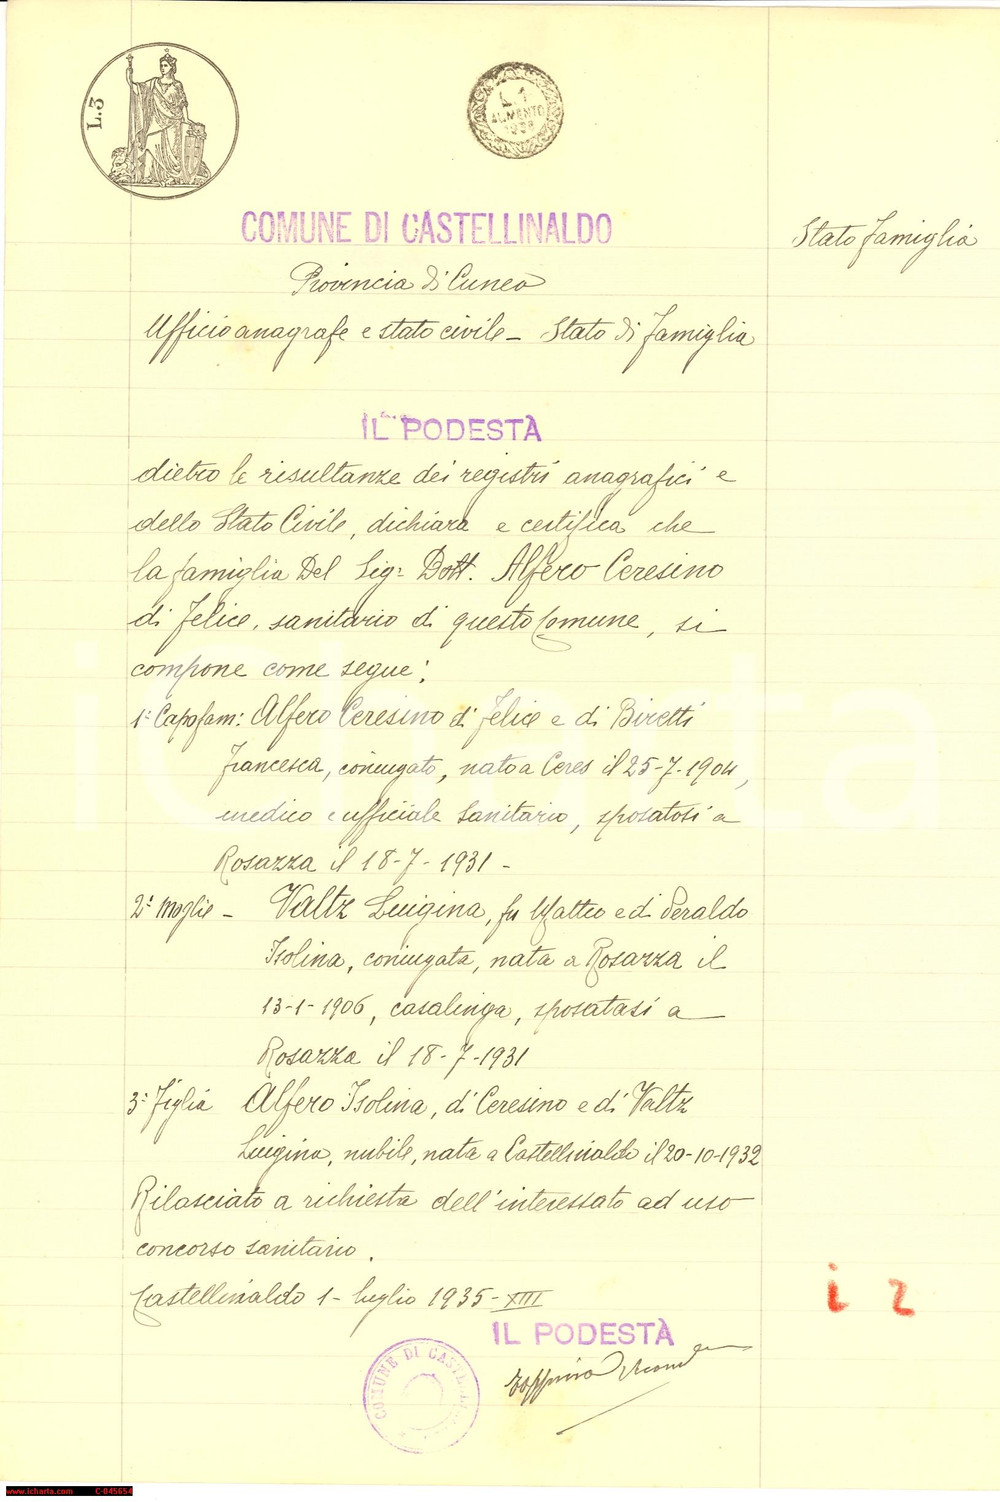 L.3
L. 1
AUMENTO
COMUNE DI CASTELLINALDO
Stato famiglia
Provincia di Cuneo
Ufficio anagrafe e stato civile – Stato di famiglia
IL PODESTÀ
dietro le risultanze dei registri anagrafici e
dello Stato Civile, dichiara e certifica che
la famiglia del Sig: Dott. Alfero Ceresino
di Felice, sanitario di questo Comune, si
compone come segue:
1: Capofam: Alfero Ceresino di Felice e di Biretti
Francesca, coniugato, nato a Ceres il 25-7-1904,
medico e ufficiale sanitario, sposatosi a
Rosazza il 18-7-1931 –
2: Moglie – Valtz Luigina, fu Matteo e di Peraldo
Isolina, coniugata, nata a Rosazza il
13-1-1906, casalinga, sposatasi a
Rosazza il 18-7-1931
3: Figlia Alfero Isolina, di Ceresino e di Valtz
Luigina, nubile, nata a Castellinaldo il 20-10-1932
Rilasciato a richiesta dell'interessato ad uso
concorso sanitario.
Castellinaldo 1 – luglio 1935 – XIII
i 2
IL PODESTÀ
COMUNE DI
iCharta
www.icharta.com C-045654